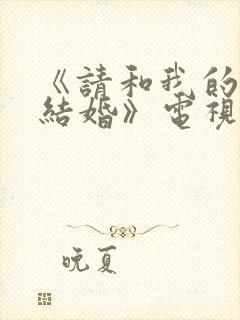 《請和我的
結婚》電視
晚夏